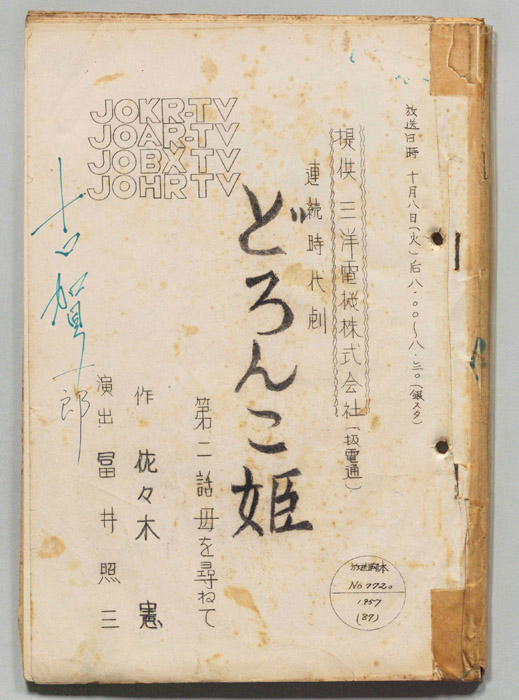 放送日時 十月八日(火)后八・〇〇〜八・三〇(銀スタ)
提供 三洋電機株式会社(扱電通)
連続時代劇
どろんこ姫
第二話 母を尋ねて
作 佐々木 憲
演出 冨井照三
JOKR-TV
JOAR-TV
JOBX TV
JOHR TV
放送脚本
No.772
1957
(87)